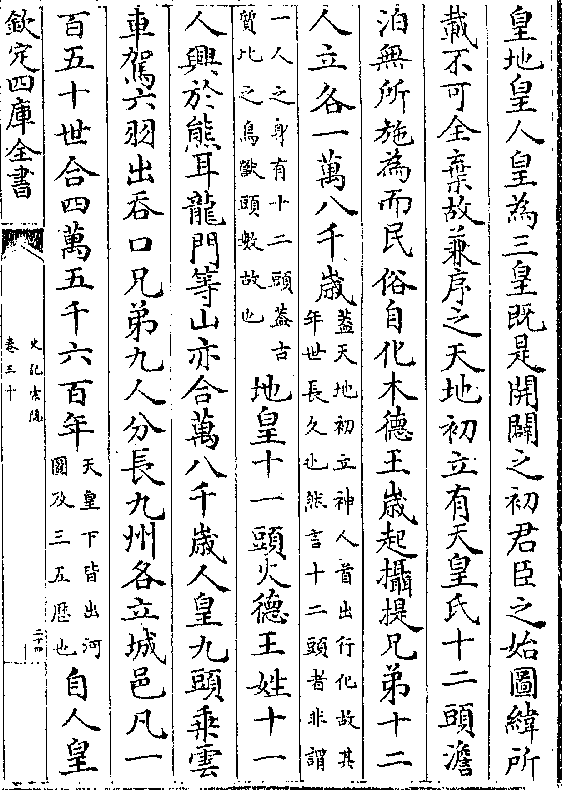 皇地皇人皇為三皇既是開闢之初君臣之始圖緯所
載不可全棄故兼序之天地初立有天皇氏十二頭澹
泊無所施為而民俗自化木德王歲起攝提兄弟十二
人立各一萬八千歲
蓋天地初立神人首出行化故其
年世長久也然言十二頭者非謂
一人之身有十二頭蓋古
質比之鳥獸頭數故也
地皇十一頭火德王姓十一
人興於熊耳龍門等山亦合萬八千歲人皇九頭乘雲
車駕六羽出吞口兄弟九人分長九州各立城邑凡一
百五十世合四萬五千六百年
天皇下皆出河
圖及三五歴也
自人皇
欽定四庫全書
史記索隱
卷三十
二十四